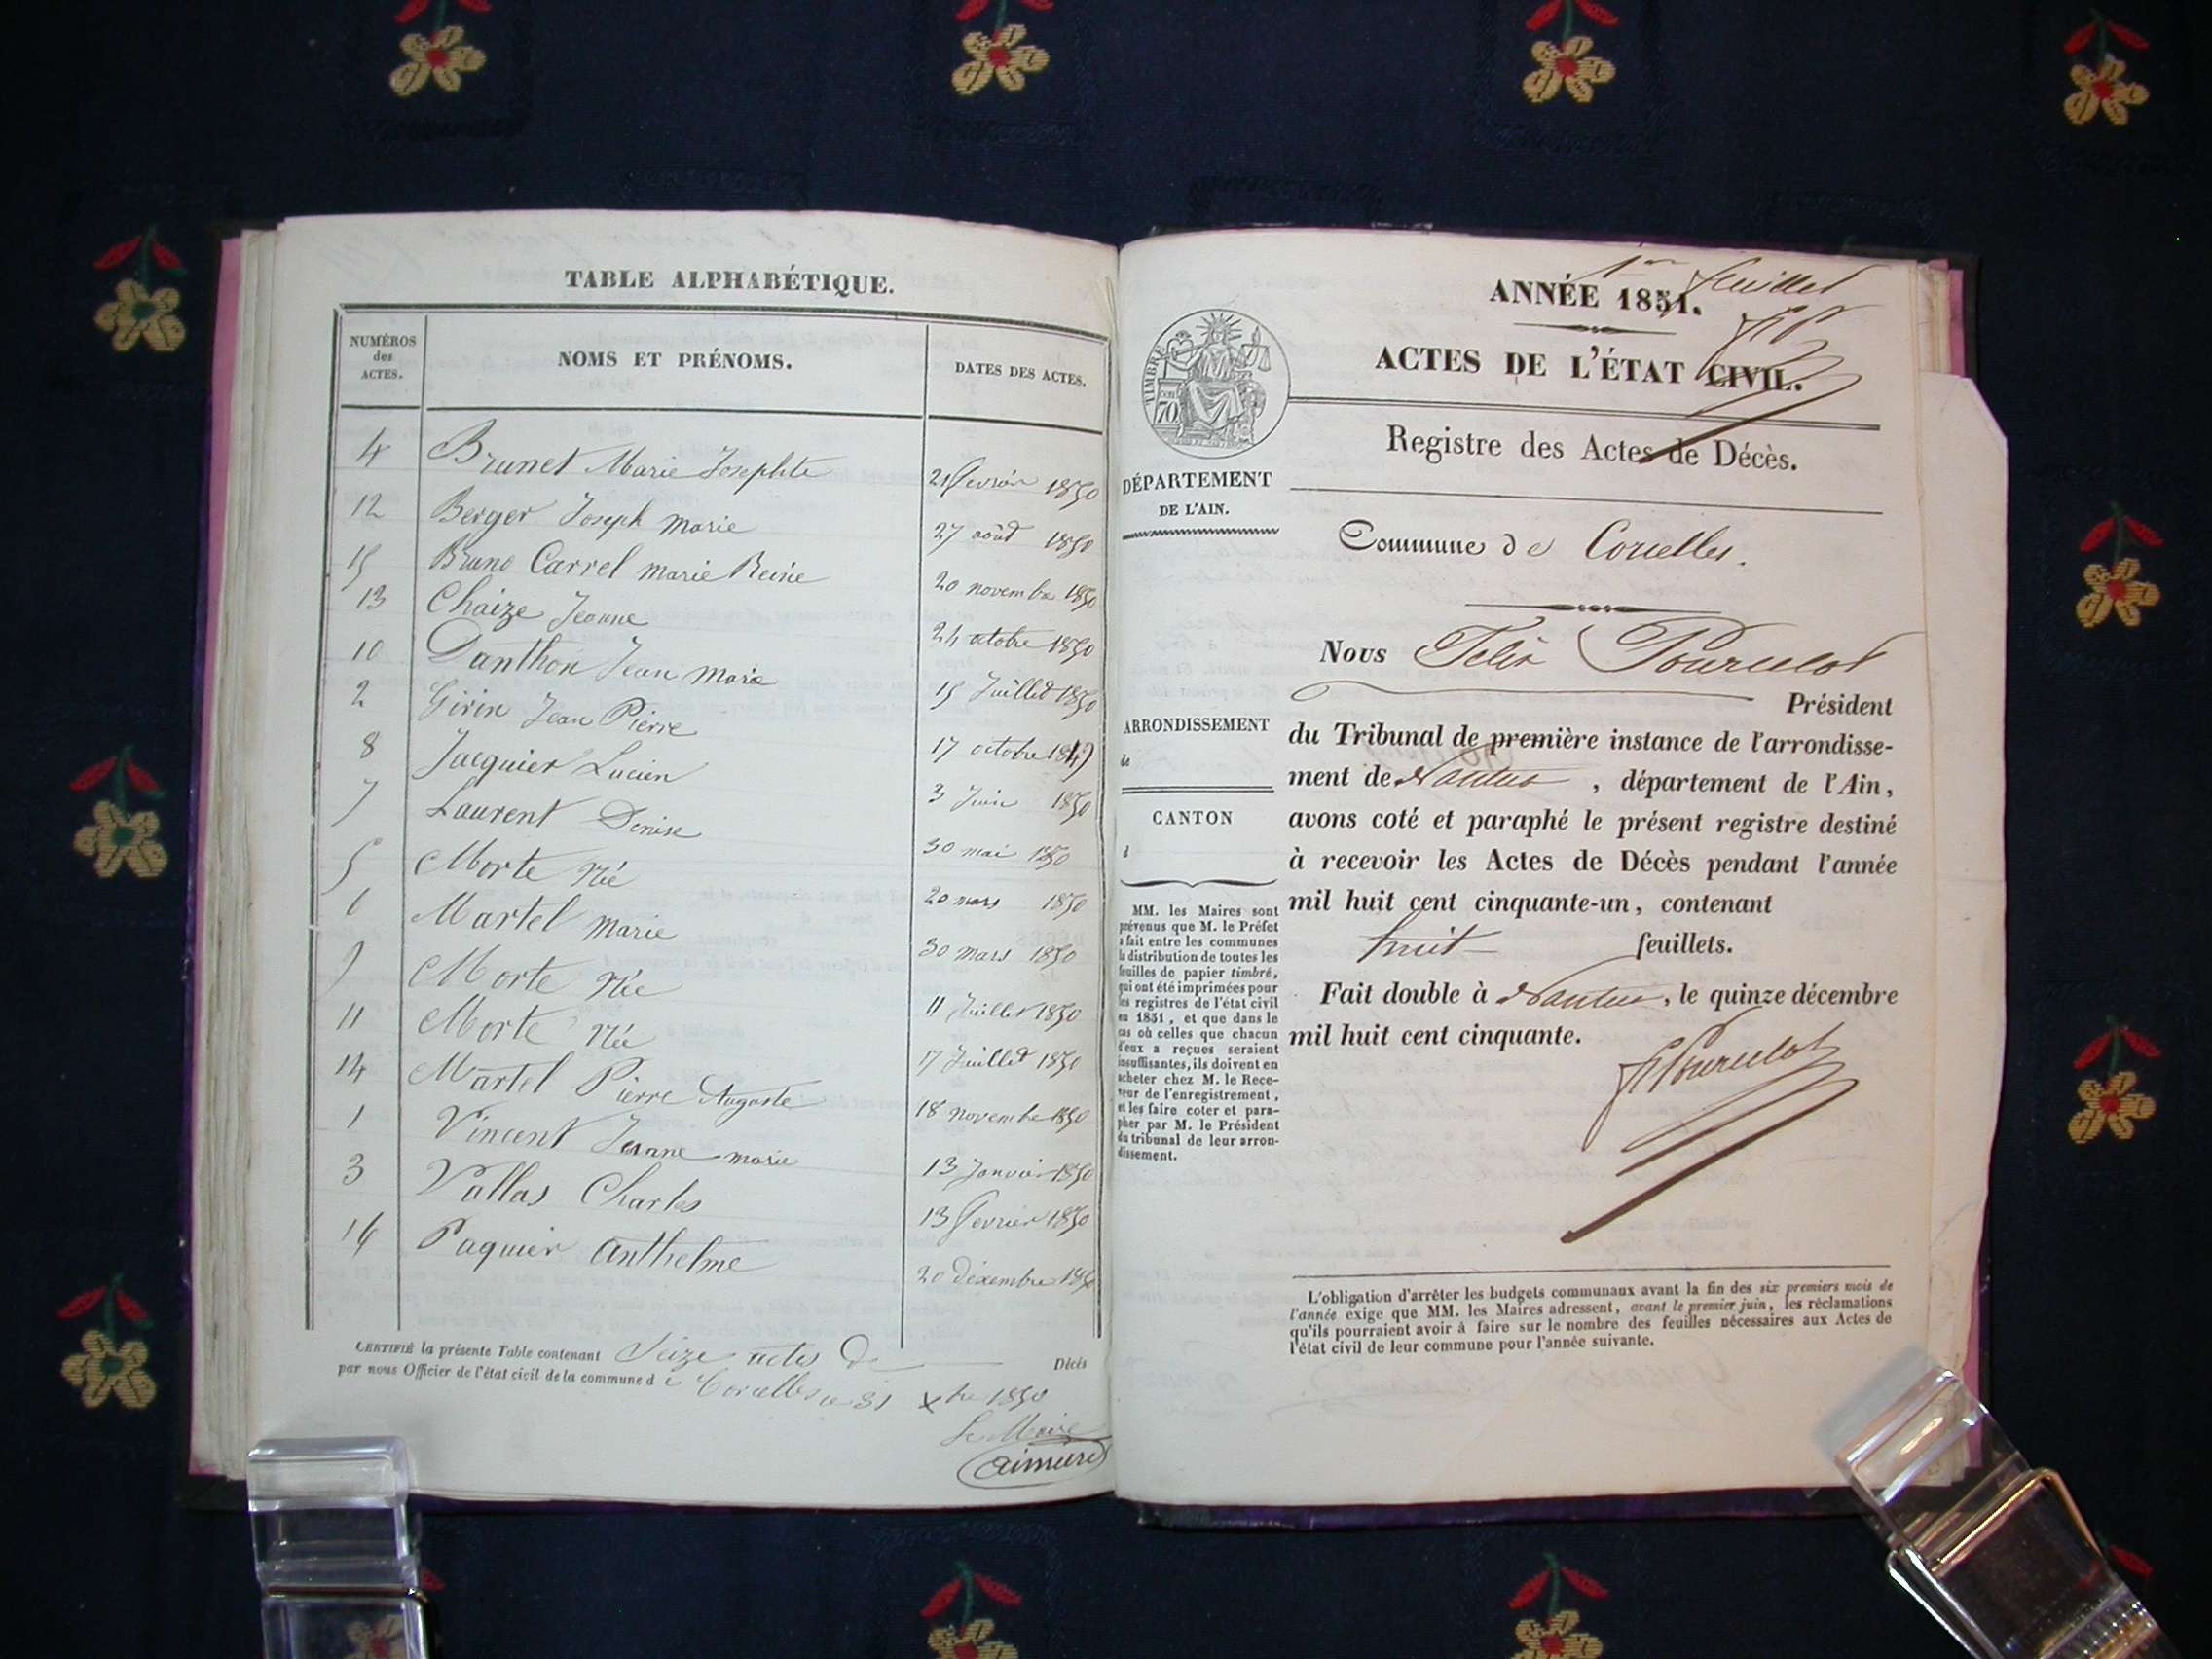 TABLE ALPHABÉTIQUE.
NUMÉROS
des
ACTES.
NOMS ET PRÉNOMS.
DATES DES ACTES.
4 Brunet Marie Josephte 21 fevrier 1850
12 Berger Joseph Marie 27 aôud 1850
15 Bruno Carrel Marie Reine 20 novembre 1850
13 Chaize Jeanne 24 octobre 1850
10 Danthon Jean Marie 15 Juillet 1850
2 Girin Jean Pierre 17 octobre
8 Jacquier Lucien 3 Juin 1850
7 Laurent Denise 30 mai 1850
5 Morte Née 20 mars 1850
6 Martel Marie 30 mars 1850
9 Morte Née 11 Juillet 1850
11 Morte Née 17 Juillet 1850
14 Martel Pierre Auguste 18 novembre 1850
1 Vincent Jeanne marie 13 Janvier 1850
3 Vallas Charles 13 fevrier 1850
Paquier Anthelme 20 décembre 1850
CERTIFIÉ la présente Table contenant Seize actes de Décès
par nous Officier de l'état civil de la commune de Corcelles le 31 Xbre 1850
Le Maire
1er feuillet
ANNÉE 1851.
ACTES DE L'ÉTAT CIVIL.
TIMBRE
70
Registre des Actes de Décès.
DÉPARTEMENT
DE L'AIN.
Commune de Corcelles.
Nous Félix Pourcelot
Président
ARRONDISSEMENT
de
CANTON
du Tribunal de première instance de l'arrondisse-
ment de Nantua, département de l'Ain,
avons coté et paraphé le présent registre destiné
à recevoir les Actes de Décès pendant l'année
mil huit cent cinquante-un, contenant
huit feuillets.
Fait double à Nantua, le quinze décembre
mil huit cent cinquante.
FPourcelot
MM. les Maires sont
prévenus que M. le Préfet
a fait entre les communes
la distribution de toutes les
feuilles de papier timbré,
qui ont été imprimées pour
les registres de l'état civil
en 1851, et que dans le
cas où celles que chacun
d'eux a reçues seraient
insuffisantes, ils doivent en
acheter chez M. le Rece-
veur de l'enregistrement,
et les faire coter et para-
pher par M. le Président
du tribunal de leur arron-
dissement.
L'obligation d'arrêter les budgets communaux avant la fin des six premiers mois de
l'année exige que MM. les Maires adressent, avant le premier juin, les réclamations
qu'ils pourraient avoir à faire sur le nombre des feuilles nécessaires aux Actes de
l'état civil de leur commune pour l'année suivante.